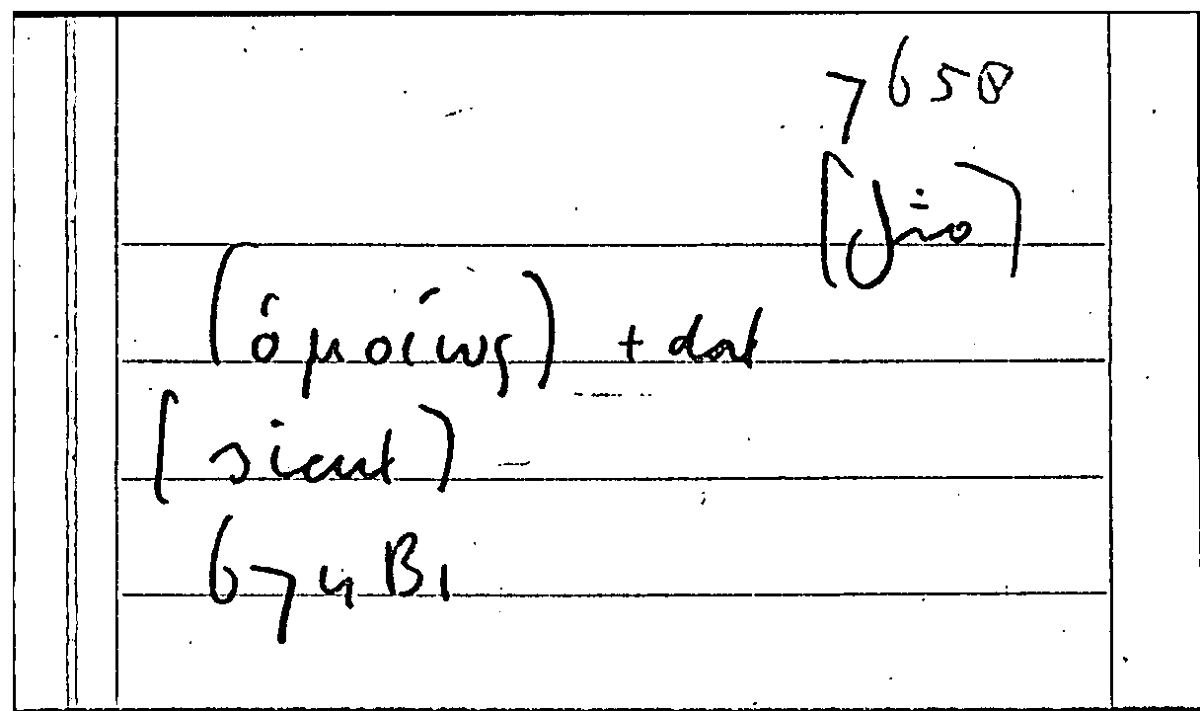 7650
(ὁμοίως) + dat
[sicut]
674 B1